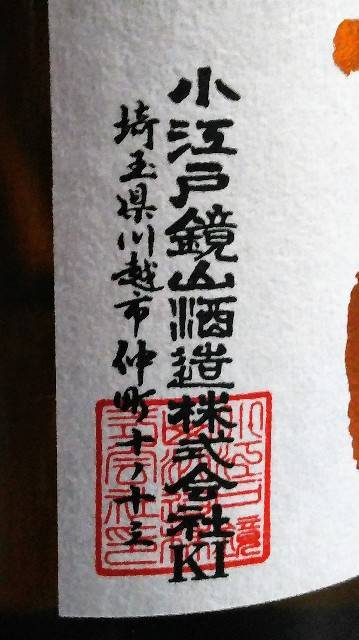 小江戸鏡山酒造株式会社KI
埼玉県川越市仲町十ノ十三